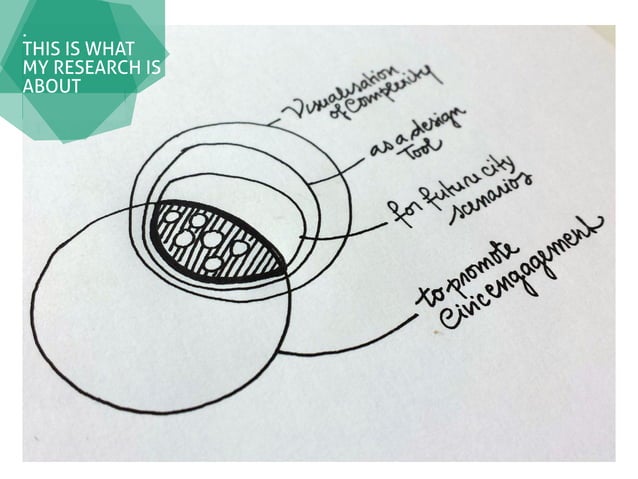 .
THIS IS WHAT
MY RESEARCH IS
ABOUT
Visualisation
of complexity
as a design
Tool
for future city
scenarios
to promote
Civic engagement